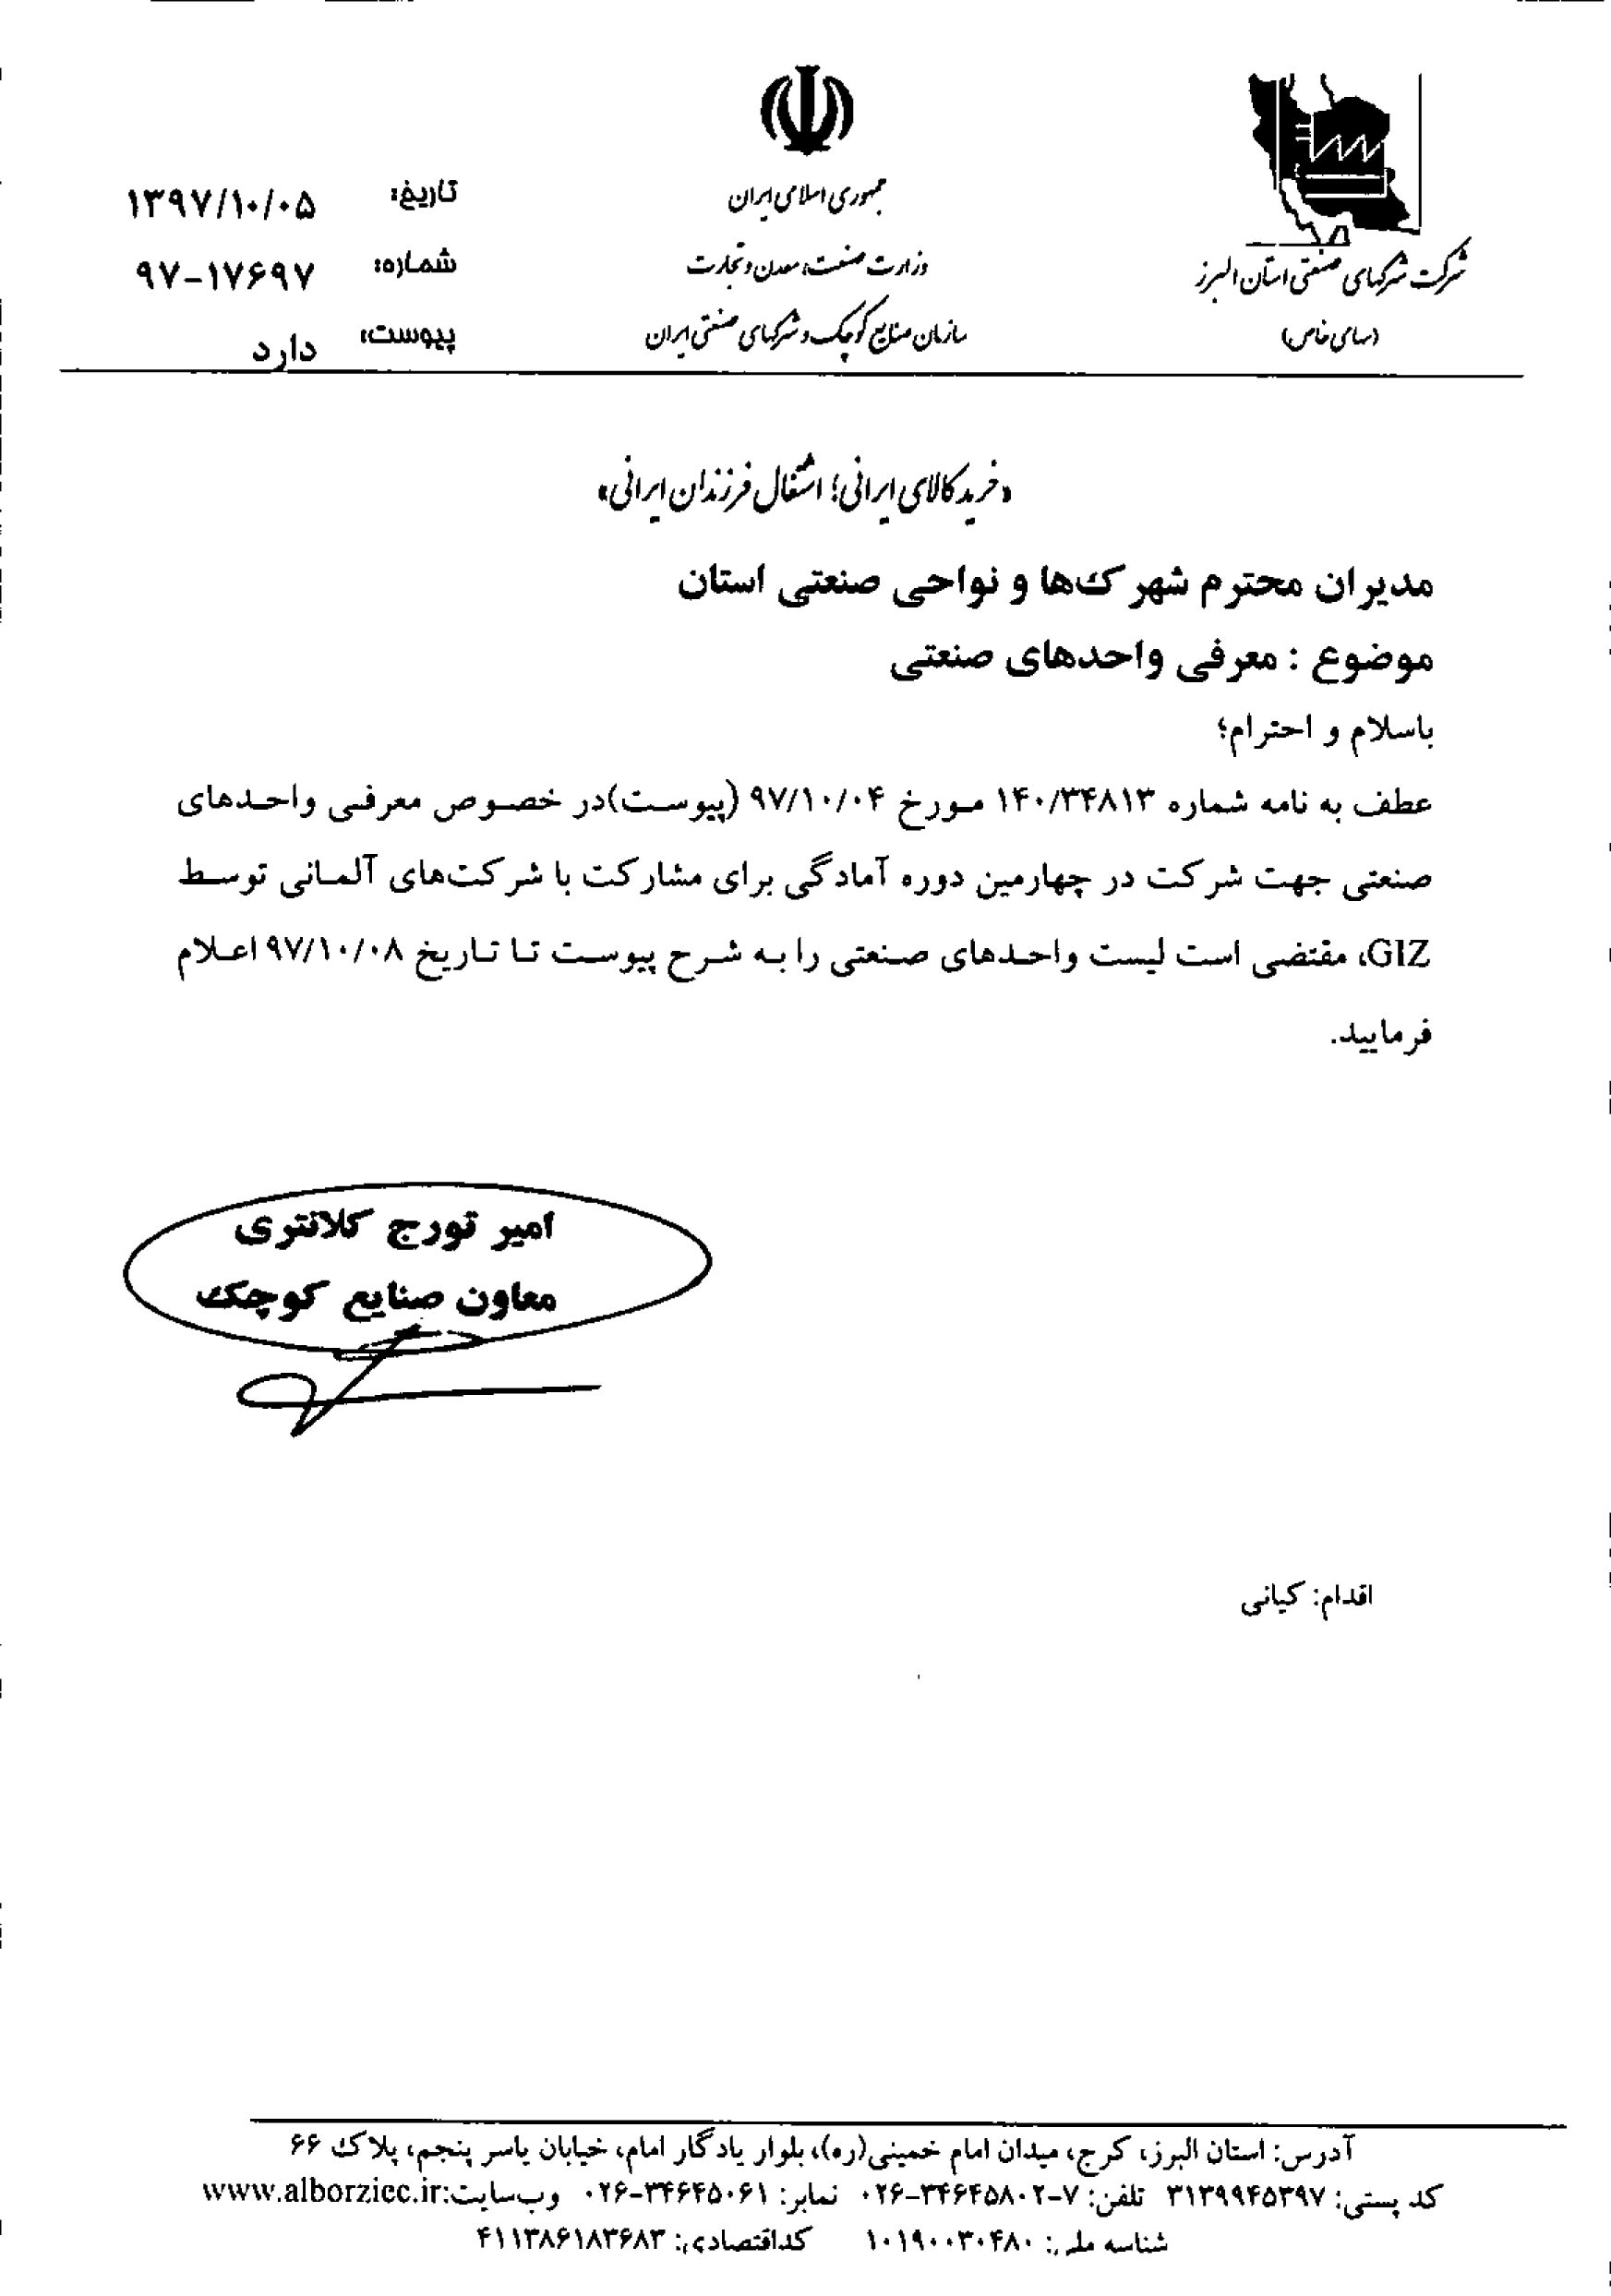 شرکت شهرکهای صنعتی استان البرز
(سهامی خاص)
جمهوری اسلامی ایران
وزارت صنعت، معدن و تجارت
سازمان صنایع کوچک و شهرکهای صنعتی ایران
تاریخ: ۱۳۹۷/۱۰/۰۵
شماره: ۹۷-۱۷۶۹۷
پیوست: دارد
«خرید کالای ایرانی؛ اشتغال فرزندان ایرانی»
مدیران محترم شهرک‌ها و نواحی صنعتی استان
موضوع : معرفی واحدهای صنعتی
باسلام و احترام؛
عطف به نامه شماره ۱۴۰/۳۴۸۱۳ مورخ ۹۷/۱۰/۰۴ (پیوست)در خصوص معرفی واحدهای
صنعتی جهت شرکت در چهارمین دوره آمادگی برای مشارکت با شرکت‌های آلمانی توسط
GIZ، مقتضی است لیست واحدهای صنعتی را به شرح پیوست تا تاریخ ۹۷/۱۰/۰۸ اعلام
فرمایید.
امیر تورج کلانتری
معاون صنایع کوچک
اقدام: کیانی
آدرس: استان البرز، کرج، میدان امام خمینی(ره)، بلوار یادگار امام، خیابان یاسر پنجم، پلاک ۶۶
کد پستی: ۳۱۳۹۹۴۵۳۹۷ تلفن: ۷-۰۲۶-۳۴۶۴۵۸۰۲ نمابر: ۰۲۶-۳۴۶۴۵۰۶۱ وب‌سایت:www.alborziec.ir
شناسه ملی: ۱۰۱۹۰۰۳۰۴۸۰ کداقتصادی: ۴۱۱۳۸۶۱۸۳۶۸۳